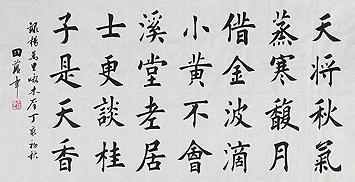 天將秋氣
蒸寒馥月
借金波滴
小黃不會
溪堂老居
士更談桂
子是天香
錄楊萬里咏木犀丁亥初秋
田蘊章